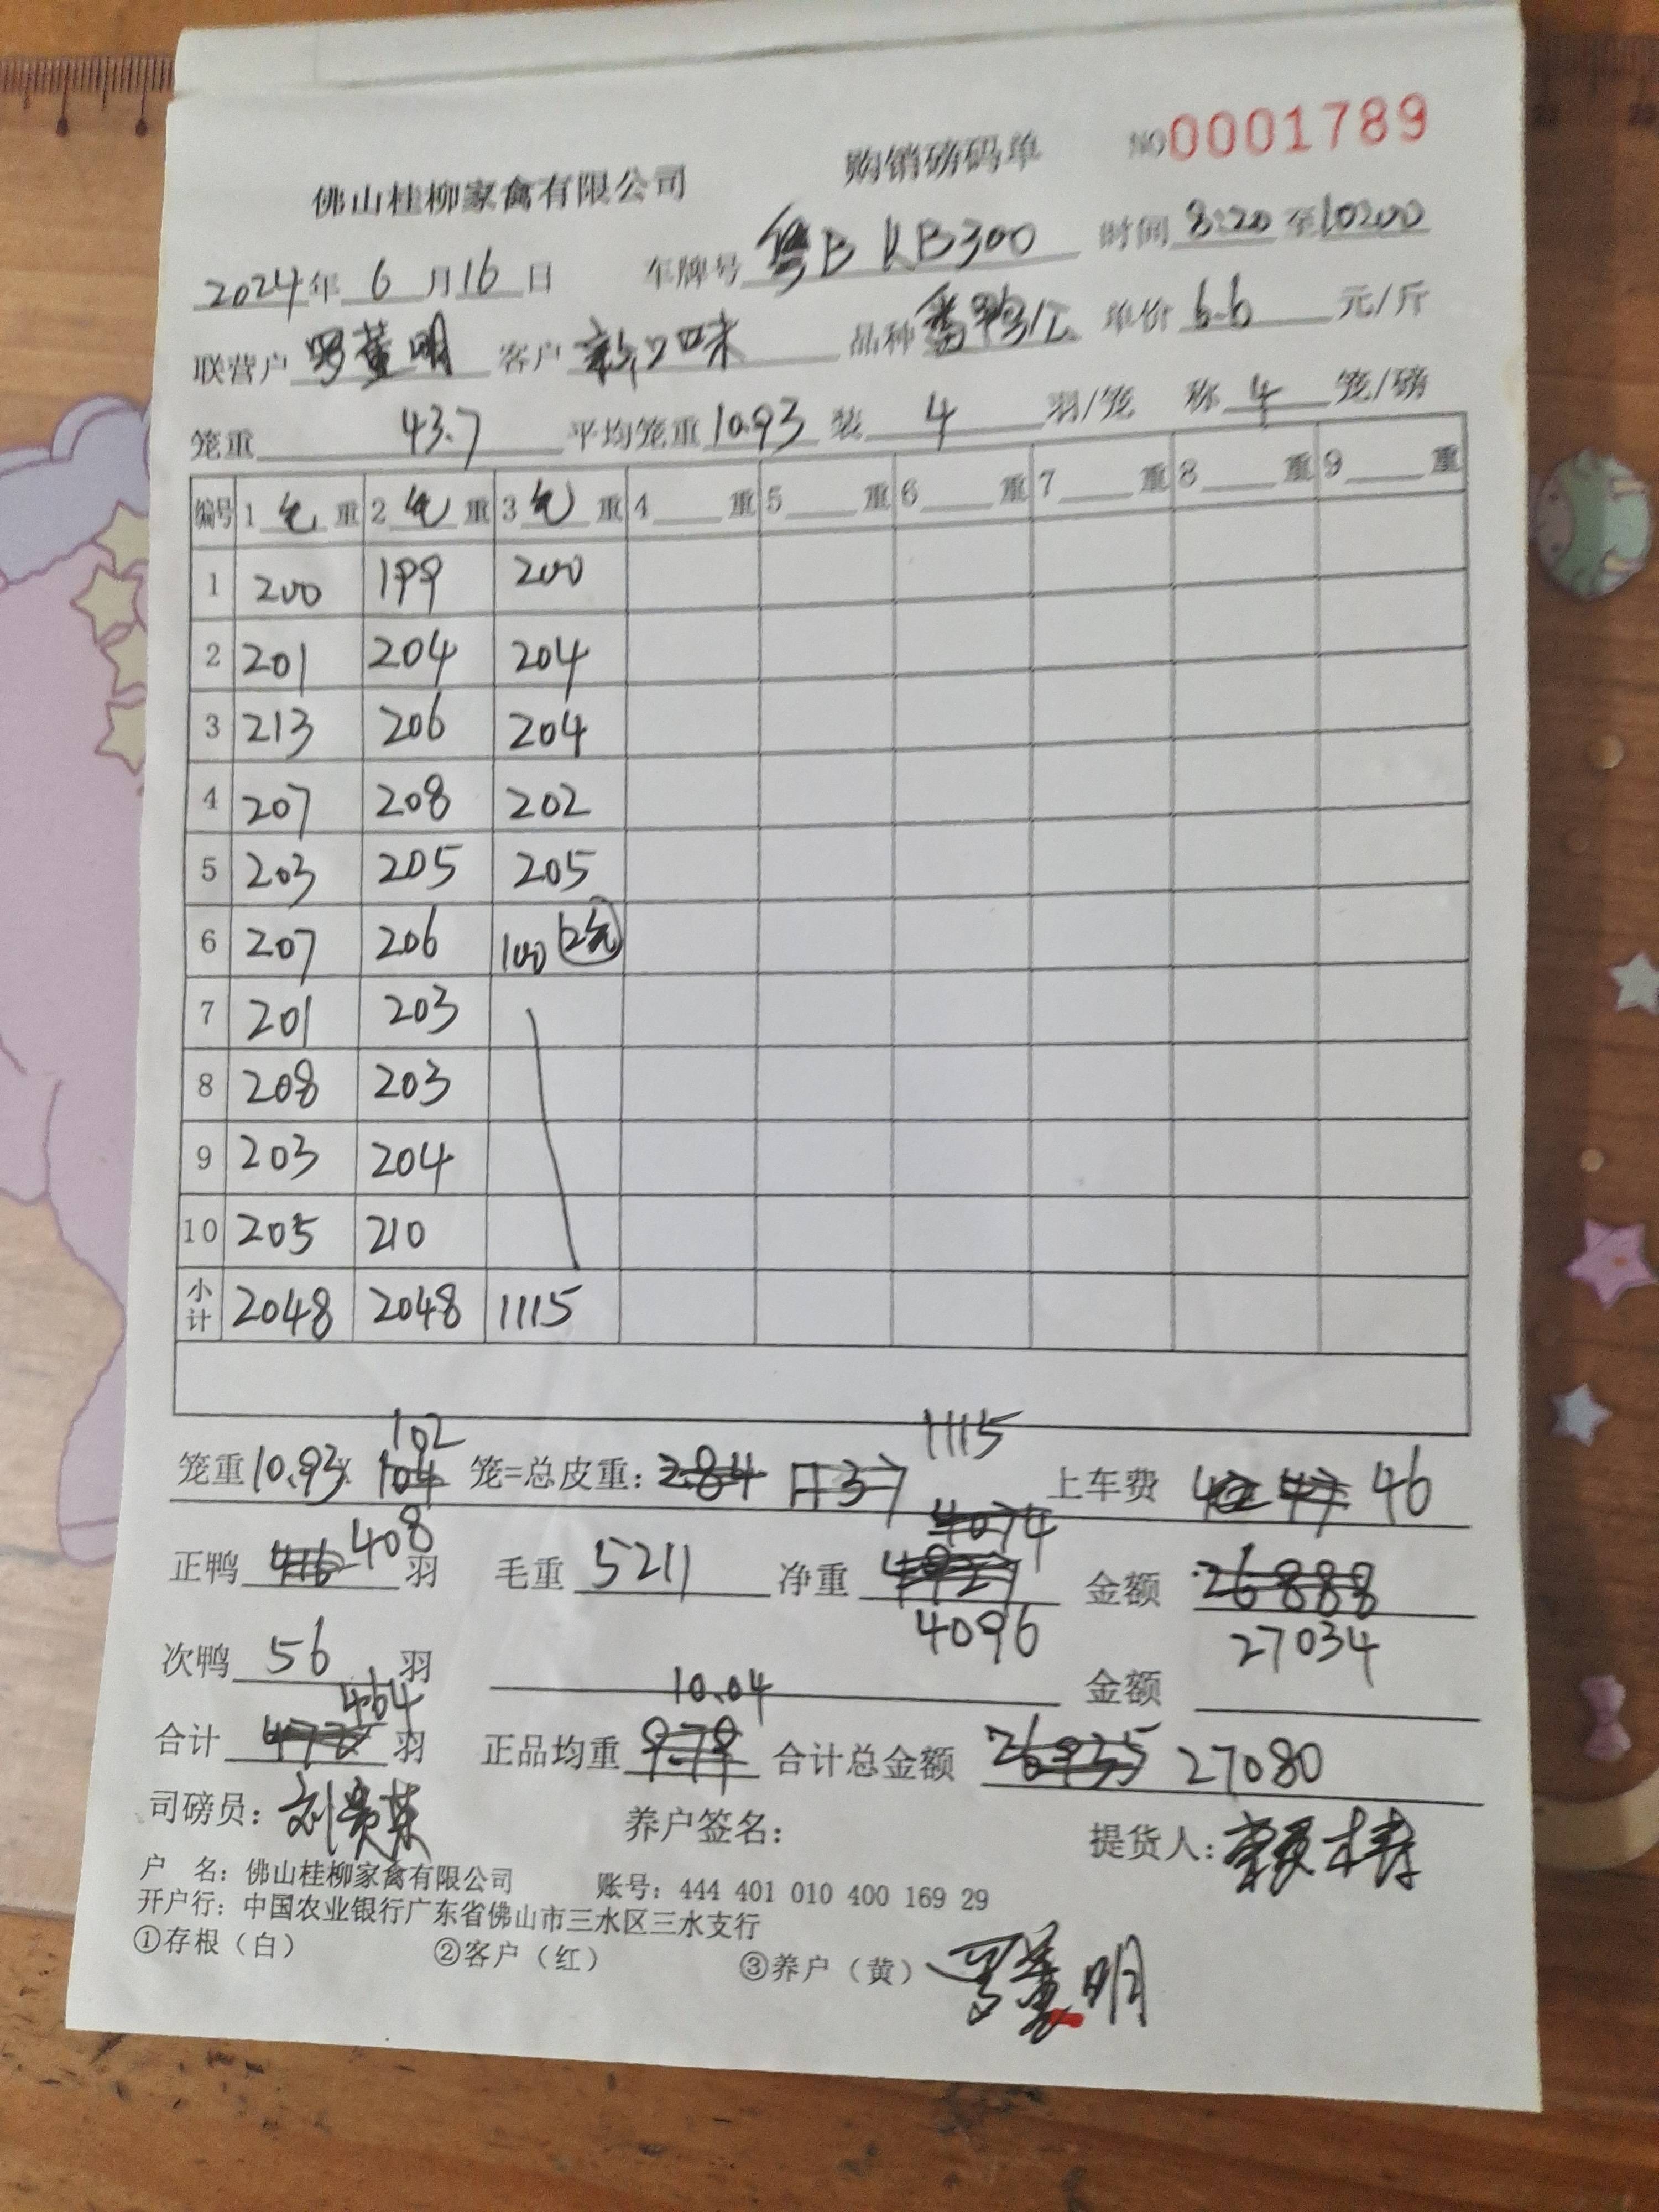 购销磅码单 NO0001789
佛山桂柳家禽有限公司
2024年6月16日 车牌号 粤B KB300 时间 8:20 至 10:00
联营户 罗 明 客户 新口味 品种 番鸭/公 单价 6.6 元/斤
笼重 43.7 平均笼重 10.93 装 4 羽/笼 称 4 笼/磅
编号 1 毛 重 2 毛 重 3 毛 重 4 重 5 重 6 重 7 重 8 重 9 重
1 200 199 200
2 201 204 204
3 213 206 204
4 207 208 202
5 203 205 205
6 207 206 100
7 201 203
8 208 203
9 203 204
10 205 210
小计 2048 2048 1115
102 1115
笼重 10.93 X 104 笼=总皮重: 284 1137 上车费 46
408 4074
正鸭 416 羽 毛重 5211 净重 4927 金额 26888
4096 27034
次鸭 56 羽 金额
464 10.04
合计 472 羽 正品均重 9.79 合计总金额 26935 27080
司磅员: 刘 养户签名: 提货人:
户 名: 佛山桂柳家禽有限公司 账号: 444 401 010 400 169 29
开户行: 中国农业银行广东省佛山市三水区三水支行
①存根（白） ②客户（红） ③养户（黄） 罗 明